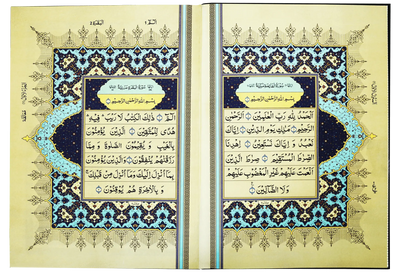 بِسْمِ اللهِ الرَّحْمٰنِ الرَّحِيمِ
اَلْحَمْدُ لِلّٰهِ رَبِّ الْعَالَمِينَ الرَّحْمٰنِ
الرَّحِيمِ مَالِكِ يَوْمِ الدِّينِ اِيَّاكَ
نَعْبُدُ وَ اِيَّاكَ نَسْتَعِينُ اِهْدِنَا
الصِّرَاطَ الْمُسْتَقِيمَ صِرَاطَ الَّذِينَ
اَنْعَمْتَ عَلَيْهِمْ غَيْرِ الْمَغْضُوبِ عَلَيْهِمْ
وَلَا الضَّالِّينَ
بِسْمِ اللهِ الرَّحْمٰنِ الرَّحِيمِ
الٓمٓ ذٰلِكَ الْكِتَابُ لَا رَيْبَ فِيهِ
هُدًى لِلْمُتَّقِينَ اَلَّذِينَ يُؤْمِنُونَ
بِالْغَيْبِ وَ يُقِيمُونَ الصَّلٰوةَ وَ مِمَّا
رَزَقْنَاهُمْ يُنْفِقُونَ وَالَّذِينَ يُؤْمِنُونَ
بِمَا اُنْزِلَ اِلَيْكَ وَمَا اُنْزِلَ مِنْ قَبْلِكَ
وَ بِالْاٰخِرَةِ هُمْ يُوقِنُونَ